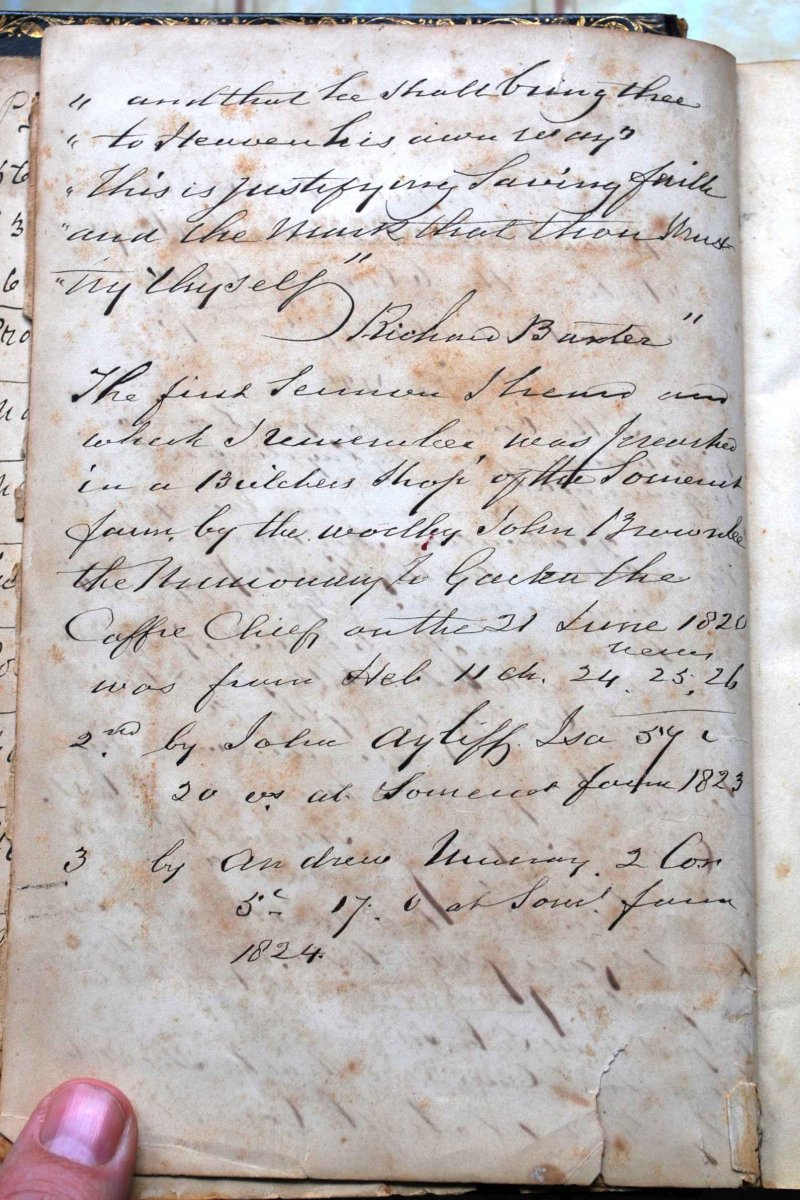 " and that he shall bring thee
" to Heaven his own way"
" This is justifying Saving faith
" and the Mark that thou Must
" try thyself"
Richard Baxter"
The first Sermon I heard and
which I remember, was preached
in a Butchers Shop of the Somerset
farm, by the worthy John Brownlee
the Missionary to Gaeka the
Caffre Chief, on the 21 June 1820
was from Heb 11 ch. 24, 25, 26 verses
2nd by John Ayliff Isa 57 c
20 vs at Somerset farm 1823
3 by Andrew Murray. 2 Cor
5 c 17. v at Somt. farm
1824.